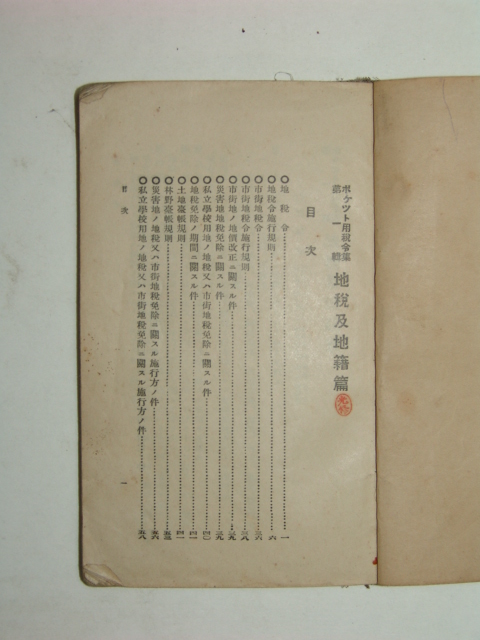 ポケツト用税令集
第一輯
地税及地籍篇
目次
◎地税令……一
◎地税令施行規則……六
◎市街地税令……三六
◎市街地税令施行規則……三八
◎市街地ノ地價改正ニ關スル件……三九
◎災害地地税免除ニ關スル件……三九
◎私立學校用地ノ地税又ハ市街地税免除ニ關スル件……四〇
◎地税免除ノ期間ニ關スル件……四一
◎土地臺帳規則……四一
◎林野臺帳規則……五三
◎災害地ノ地税又ハ市街地税免除ニ關スル施行方ノ件……五六
◎私立學校用地ノ地税又ハ市街地税免除ニ關スル施行方ノ件……五八
目次
一